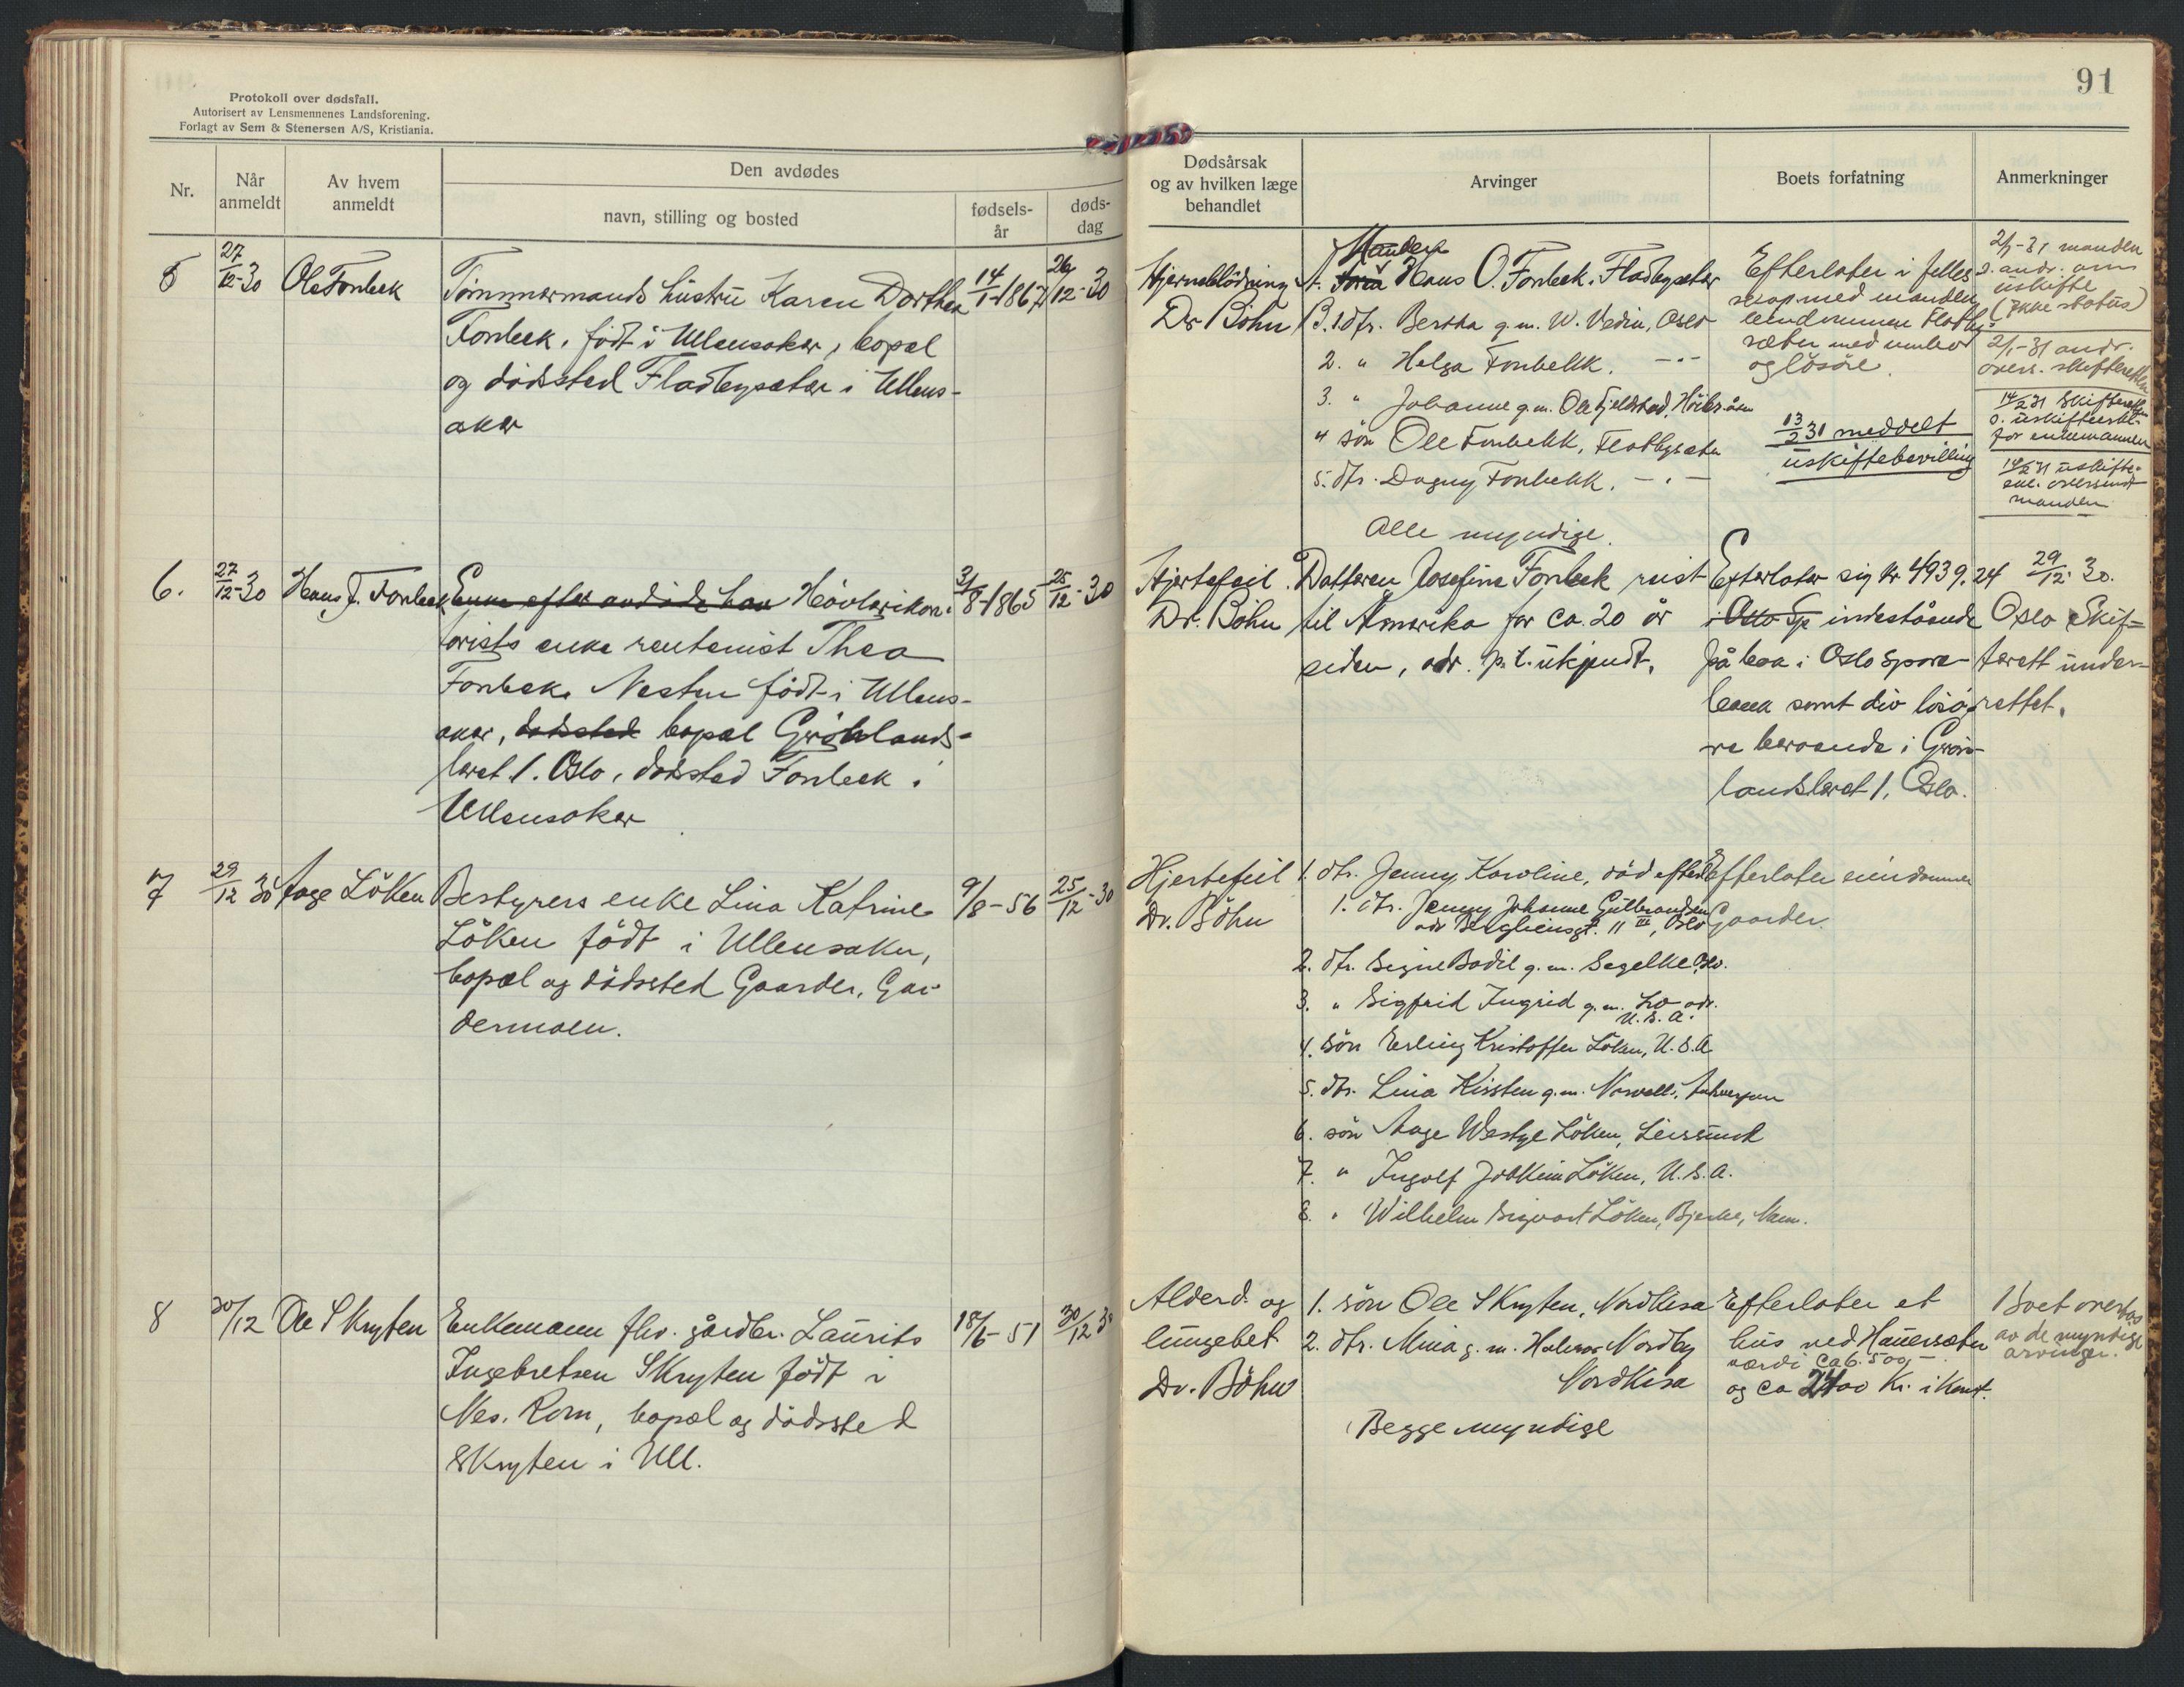 Protokoll over dødsfall.
Autorisert av Lensmennenes Landsforening.
Forlagt av Sem & Stenersen A/S, Kristiania.
Nr.
Når anmeldt
Av hvem anmeldt
Den avdødes
navn, stilling og bosted
fødsels-år
døds-dag
5
27/12-30
Ole Fonbæk
Tømmermands hustru Karen Dorthea
Fonbæk, født i Ullensaker, bopæl
og dødsted Fladbysæter i Ullens-
aker
14/1-1867
26/12-30
6.
27/12-30
Hans J. Fonbæk
Enke efter avdøde Høvlerikon-
torists enke rentenist Thea
Fonbæk. Nesten født i Ullens-
aker, dødsted bopæl Grønlands-
leret 1. Oslo, dødsted Fonbæk i
Ullensaker
3/8-1865
25/12-30
7
29/12 30
Aage Løken
Bestyrers enke Lina Katrine
Løken født i Ullensaker,
bopæl og dødssted Gaarder, Gar-
dermoen.
9/8-56
25/12-30
8
30/12
Ole Skryten
Enkemann fhv. gårdbr. Laurits
Ingebretsen Skryten født i
Nes. Rom, bopæl og dødssted
Skryten i Ull.
18/6-51
30/12 30
91
Dødsårsak
og av hvilken læge
behandlet
Arvinger
Boets forfatning
Anmerkninger
Hjerneblødning
Dr Bøhn
Manden
A. Hans O. Fonbæk. Fladbysæter
B. 1 dtr. Bertha g.m. W. Vedin, Oslo
2. " Helga Fonbekk. -"-
3. " Johanne g.m. Ole Fjeldstad,
4 søn Ole Fonbekk, Fladbysæter
5. dtr. Dagny Fonbekk. -"-
Alle myndige.
Efterlater i felles-
skap med manden
eiendommen Fladby-
sæter med
og løsøre.
13/2 31 meddelt
uskiftebevilling
2/1-31 manden
s. andr. om
uskifte
(ikke status)
2/1-31 andr.
overs. skifteretten
14/2 31 Skifteretten
s. uskiftebev.
for enkemannen
14/2 31 uskifte-
bev. oversendt
manden
Hjertefeil.
Dr. Bøhn
Datteren Josefine Fonbæk reist
til Amerika for ca. 20 år
siden, adr. p.t. ukjendt.
Efterlater sig kr 4939,24
i Oslo Sp indestående
på boa i Oslo Spare-
bank samt div løsø-
re beroende i Grøn-
landsleret 1, Oslo.
29/12- 30.
Oslo Skif-
terett under-
rettet.
Hjertefeil
Dr. Bøhn
1. dtr. Jenny Karoline, død efterl.
1. dtr. Jenny Johanne Gulbrandsen
adr Bergliensgt. 11 III, Oslo
2. dtr. Signe Bodil g.m. Segelke Oslo.
3. " Sigfrid Ingrid g.m. Lso adr.
U.S.A.
4. søn Erling Kristoffer Løken, U.S.A
5. dtr. Lina Kirsten g.m. Norvalls, Antwerpen
6. søn Aage Westye Løken, Leirsund
7. " Ingolf Joakim Løken, U.S.A.
8. " Wilhelm Sigvart Løken, Bjerke, Nann.
Efterlater eiendommen
Gaarder.
Alderd. og
lungebet.
Dr. Bøhn
1. søn Ole Skryten, Nordkisa
2. dtr. Mina g.m. Halvor Nordby
Nordkisa
Begge myndige
Efterlater et
hus ved Hauersæter
værdi ca 6.500,-
og ca 2400 Kr. i Kont.
Boet overtas
av de myndige
arvinger.